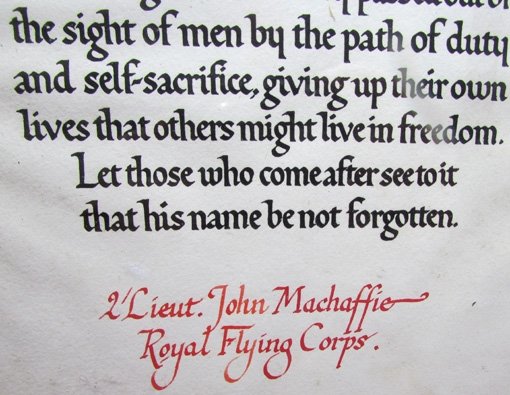 the sight of men by the path of duty
and self-sacrifice, giving up their own
lives that others might live in freedom.
Let those who come after see to it
that his name be not forgotten.
2'Lieut. John Machaffie
Royal Flying Corps.